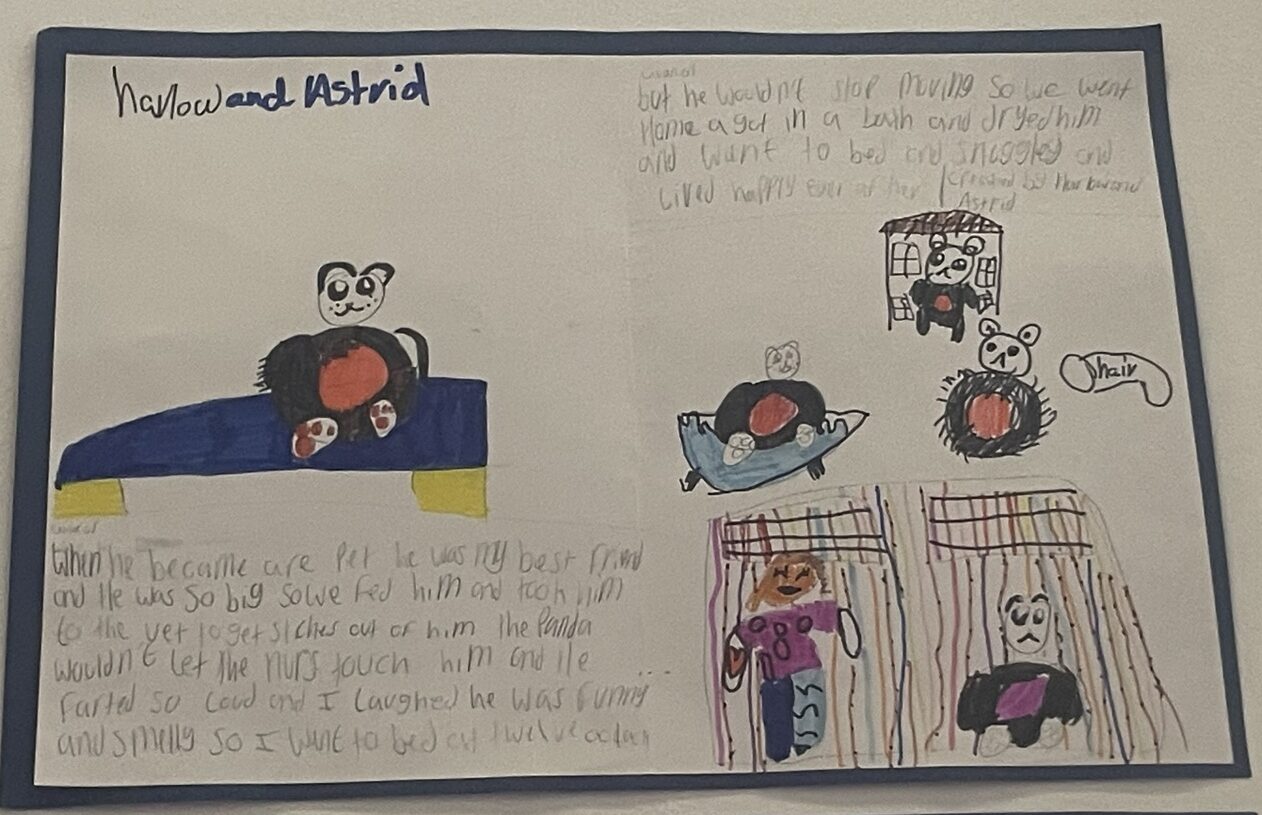 harlow and Astrid
When he became are Pet he was my best friend
and He was so big so we fed him and took him
to the vet to get stches out of him the Panda
wouldn't let the nurs touch him and He ...
farted so loud and I laughed he was funny
and smelly so I want to bed at twelve
but he wouldn't stop moving so we went
Home a got in a bath and dryed him
and want to bed and snuggled and
Lived happly ever after
Created by Harlow and
Astrid
hair